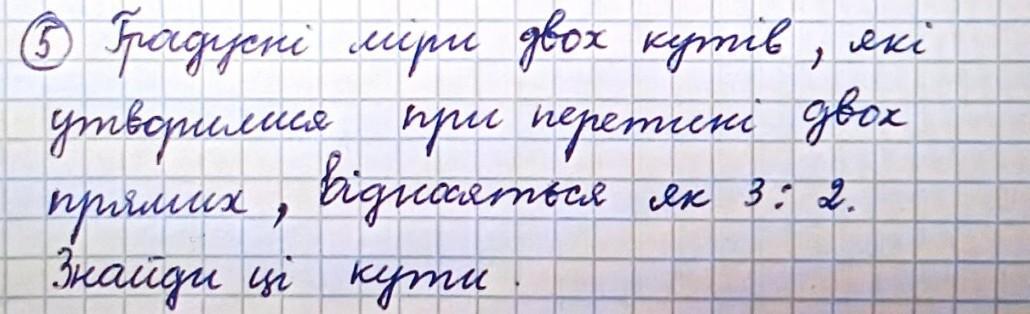 5 Градусні міри двох кутів, які
утворилися при перетині двох
прямих, відносяться як 3:2.
Знайди ці кути.